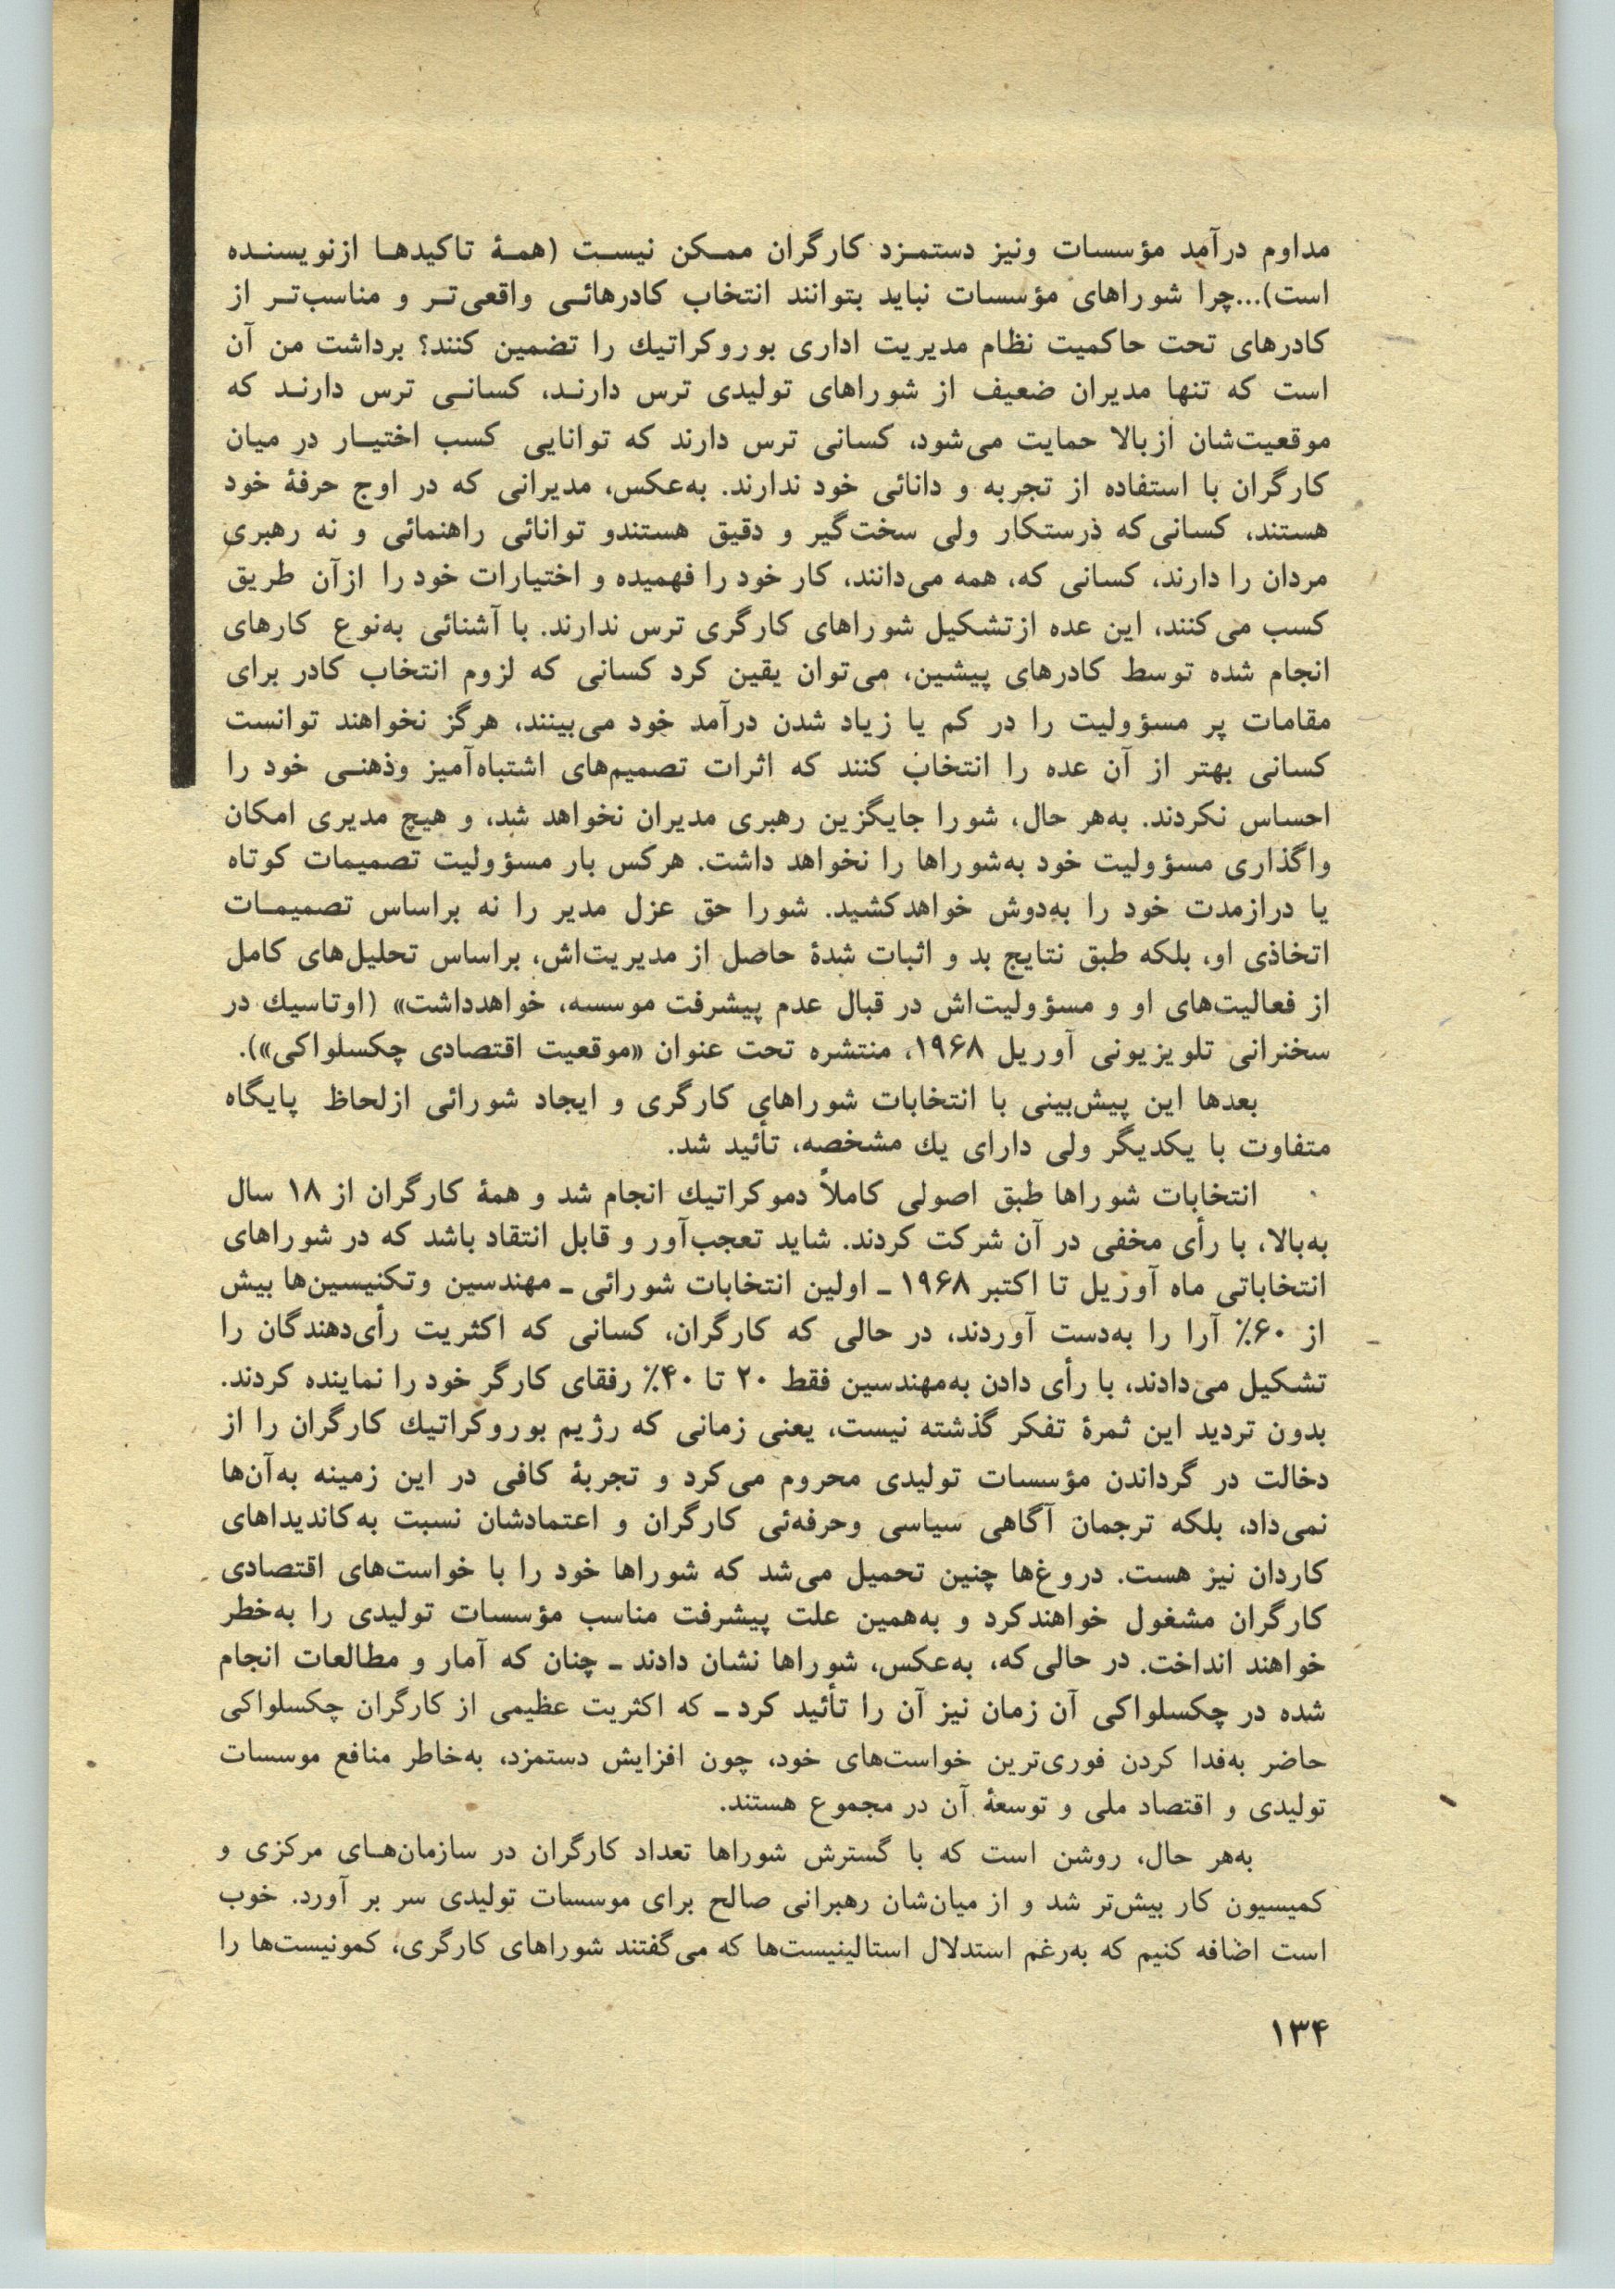 مداوم درآمد مؤسسات ونیز دستمـزد کارگران ممـکن نیسـت (همـۀ تاکیدهـا ازنویسنـده
است)...چرا شوراهای مؤسسات نباید بتوانند انتخاب کادرهائـی واقعی‌تـر و مناسب‌تـر از
کادرهای تحت حاکمیت نظام مدیریت اداری بوروکراتیك را تضمین کنند؟ برداشت من آن
است که تنها مدیران ضعیف از شوراهای تولیدی ترس دارنـد، کسانـی ترس دارنـد که
موقعیت‌شان ازبالا حمایت می‌شود، کسانی ترس دارند که توانایی کسب اختیـار در میان
کارگران با استفاده از تجربه و دانائی خود ندارند. به‌عکس، مدیرانی که در اوج حرفۀ خود
هستند، کسانی‌که درستکار ولی سخت‌گیر و دقیق هستندو توانائی راهنمائی و نه رهبری
مردان را دارند، کسانی که، همه می‌دانند، کار خود را فهمیده و اختیارات خود را ازآن طریق
کسب می‌کنند، این عده ازتشکیل شوراهای کارگری ترس ندارند. با آشنائی به‌نوع کارهای
انجام شده توسط کادرهای پیشین، می‌توان یقین کرد کسانی که لزوم انتخاب کادر برای
مقامات پر مسؤولیت را در کم یا زیاد شدن درآمد خود می‌بینند، هرگز نخواهند توانست
کسانی بهتر از آن عده را انتخاب کنند که اثرات تصمیم‌های اشتباه‌آمیز وذهنـی خود را
احساس نکردند. به‌هر حال، شورا جایگزین رهبری مدیران نخواهد شد، و هیچ مدیری امکان
واگذاری مسؤولیت خود به‌شوراها را نخواهد داشت. هرکس بار مسؤولیت تصمیمات کوتاه
یا درازمدت خود را به‌دوش خواهدکشید. شورا حق عزل مدیر را نه براساس تصمیمـات
اتخاذی او، بلکه طبق نتایج بد و اثبات شدۀ حاصل از مدیریت‌اش، براساس تحلیل‌های کامل
از فعالیت‌های او و مسؤولیت‌اش در قبال عدم پیشرفت موسسه، خواهدداشت» (اوتاسیك در
سخنرانی تلویزیونی آوریل ۱۹۶۸، منتشره تحت عنوان «موقعیت اقتصادی چکسلواکی»).
بعدها این پیش‌بینی با انتخابات شوراهای کارگری و ایجاد شورائی ازلحاظ پایگاه
متفاوت با یکدیگر ولی دارای یك مشخصه، تأئید شد.
انتخابات شوراها طبق اصولی کاملاً دموکراتیك انجام شد و همۀ کارگران از ۱۸ سال
به‌بالا، با رأی مخفی در آن شرکت کردند. شاید تعجب‌آور و قابل انتقاد باشد که در شوراهای
انتخاباتی ماه آوریل تا اکتبر ۱۹۶۸ ـ اولین انتخابات شورائی ـ مهندسین وتکنیسین‌ها بیش
از ۶۰٪ آرا را به‌دست آوردند، در حالی که کارگران، کسانی که اکثریت رأی‌دهندگان را
تشکیل می‌دادند، با رأی دادن به‌مهندسین فقط ۲۰ تا ۴۰٪ رفقای کارگر خود را نماینده کردند.
بدون تردید این ثمرۀ تفکر گذشته نیست، یعنی زمانی که رژیم بوروکراتیك کارگران را از
دخالت در گرداندن مؤسسات تولیدی محروم می‌کرد و تجربۀ کافی در این زمینه به‌آن‌ها
نمی‌داد، بلکه ترجمان آگاهی سیاسی وحرفه‌ئی کارگران و اعتمادشان نسبت به‌کاندیداهای
کاردان نیز هست. دروغ‌ها چنین تحمیل می‌شد که شوراها خود را با خواست‌های اقتصادی
کارگران مشغول خواهندکرد و به‌همین علت پیشرفت مناسب مؤسسات تولیدی را به‌خطر
خواهند انداخت. در حالی‌که، به‌عکس، شوراها نشان دادند ـ چنان که آمار و مطالعات انجام
شده در چکسلواکی آن زمان نیز آن را تأئید کرد ـ که اکثریت عظیمی از کارگران چکسلواکی
حاضر به‌فدا کردن فوری‌ترین خواست‌های خود، چون افزایش دستمزد، به‌خاطر منافع موسسات
تولیدی و اقتصاد ملی و توسعۀ آن در مجموع هستند.
به‌هر حال، روشن است که با گسترش شوراها تعداد کارگران در سازمان‌هـای مرکزی و
کمیسیون کار بیش‌تر شد و از میان‌شان رهبرانی صالح برای موسسات تولیدی سر بر آورد. خوب
است اضافه کنیم که به‌رغم استدلال استالینیست‌ها که می‌گفتند شوراهای کارگری، کمونیست‌ها را
۱۳۴